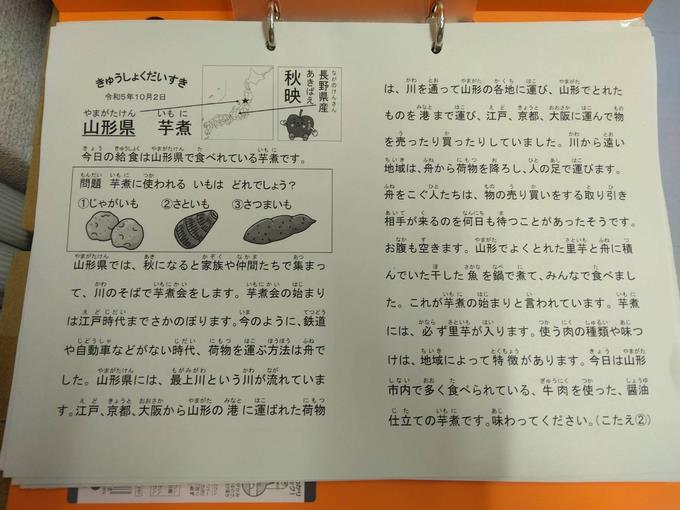 きゅうしょくだいすき
令和5年10月2日
山形県 芋煮
長野県産
秋映
今日の給食は山形県で食べられている芋煮です。
問題 芋煮に使われる いもは どれでしょう?
①じゃがいも ②さといも ③さつまいも
山形県では、秋になると家族や仲間たちで集まっ
て、川のそばで芋煮会をします。芋煮会の始まり
は江戸時代までさかのぼります。今のように、鉄道
や自動車などがない時代、荷物を運ぶ方法は舟で
した。山形県には、最上川という川が流れていま
す。江戸、京都、大阪から山形の港に運ばれた荷物
は、川を通って山形の各地に運び、山形でとれた
ものを港まで運び、江戸、京都、大阪に運んで物
を売ったり買ったりしていました。川から遠い
地域は、舟から荷物を降ろし、人の足で運びます。
舟をこぐ人たちは、物の売り買いをする取り引き
相手が来るのを何日も待つことがあったそうです。
お腹も空きます。山形でよくとれた里芋と舟に積
んでいた干した魚を鍋で煮て、みんなで食べまし
た。これが芋煮の始まりと言われています。芋煮
には、必ず里芋が入ります。使う肉の種類や味つ
けは、地域によって特徴があります。今日は山形
市内で多く食べられている、牛肉を使った、醤油
仕立ての芋煮です。味わってください。(こたえ②)